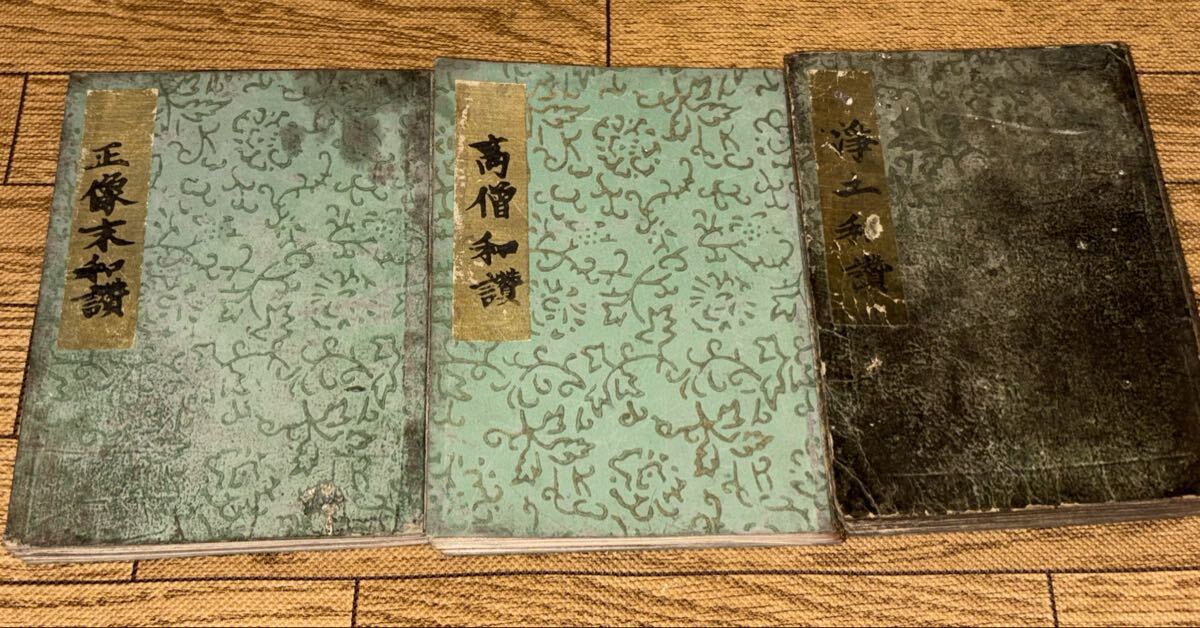 正像末和讃
高僧和讃
浄土和讃